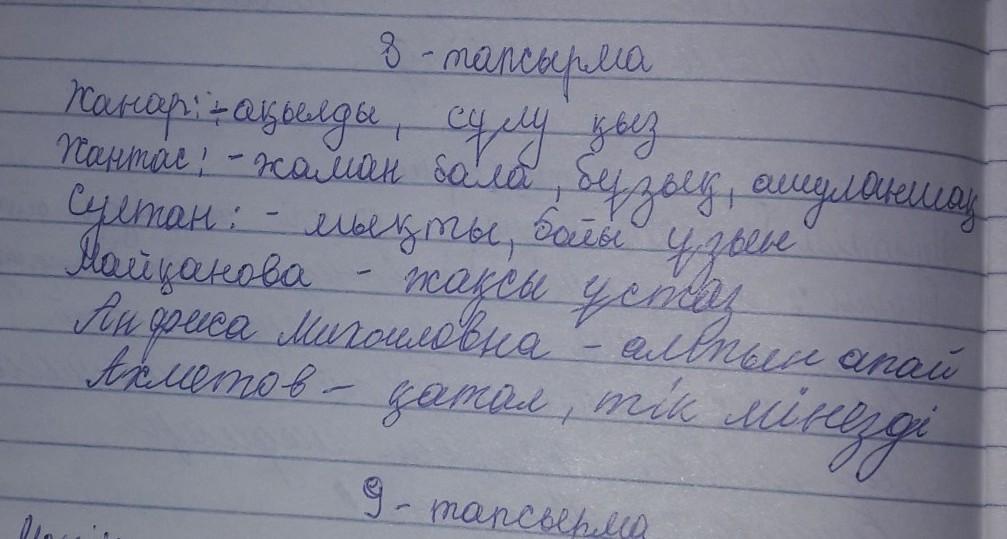 8 - тапсырма
Жанар: - ақылды, сұлу қыз
Жантас: - жаман бала, бұзық, ашуланшақ
Сұлтан: - мықты, бойы ұзын
Майқанова - жақсы ұстаз
Анфиса Михаиловна - алтын апай
Ахметов - қатал, тік мінезді
9 - тапсырма